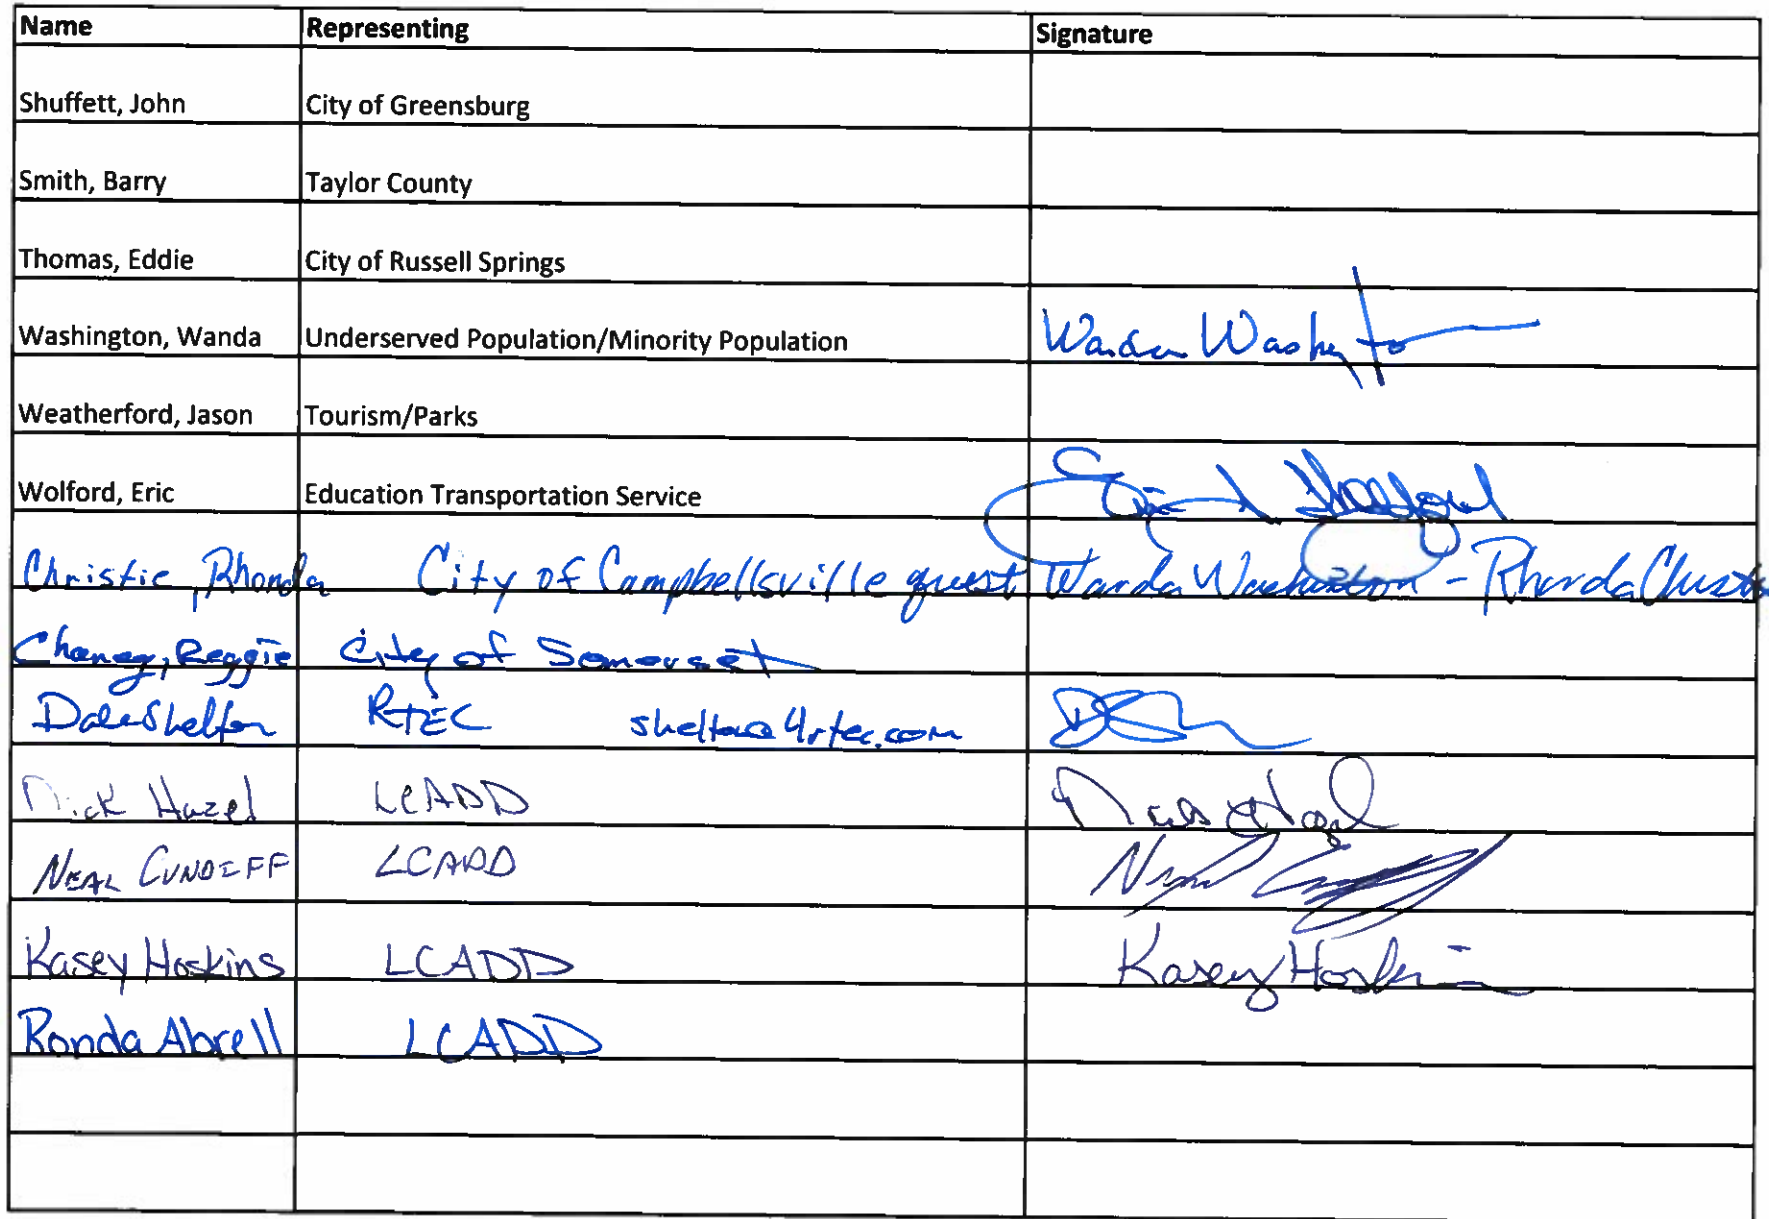 Name Representing Signature
Shuffett, John City of Greensburg
Smith, Barry Taylor County
Thomas, Eddie City of Russell Springs
Washington, Wanda Underserved Population/Minority Population Wanda Washington
Weatherford, Jason Tourism/Parks
Wolford, Eric Education Transportation Service Eric Wolford
Christie, Rhonda City of Campbellsville guest Wanda Washington - Rhonda Christie
Chaney, Reggie City of Somerset
Dale Shelton RTEC shelton@4rtec.com
Nick Hazel LCADD Nick Hazel
NEAL CUNDIFF LCADD Neal
Kasey Hoskins LCADD Kasey Hoskins
Ronda Abrell LCADD